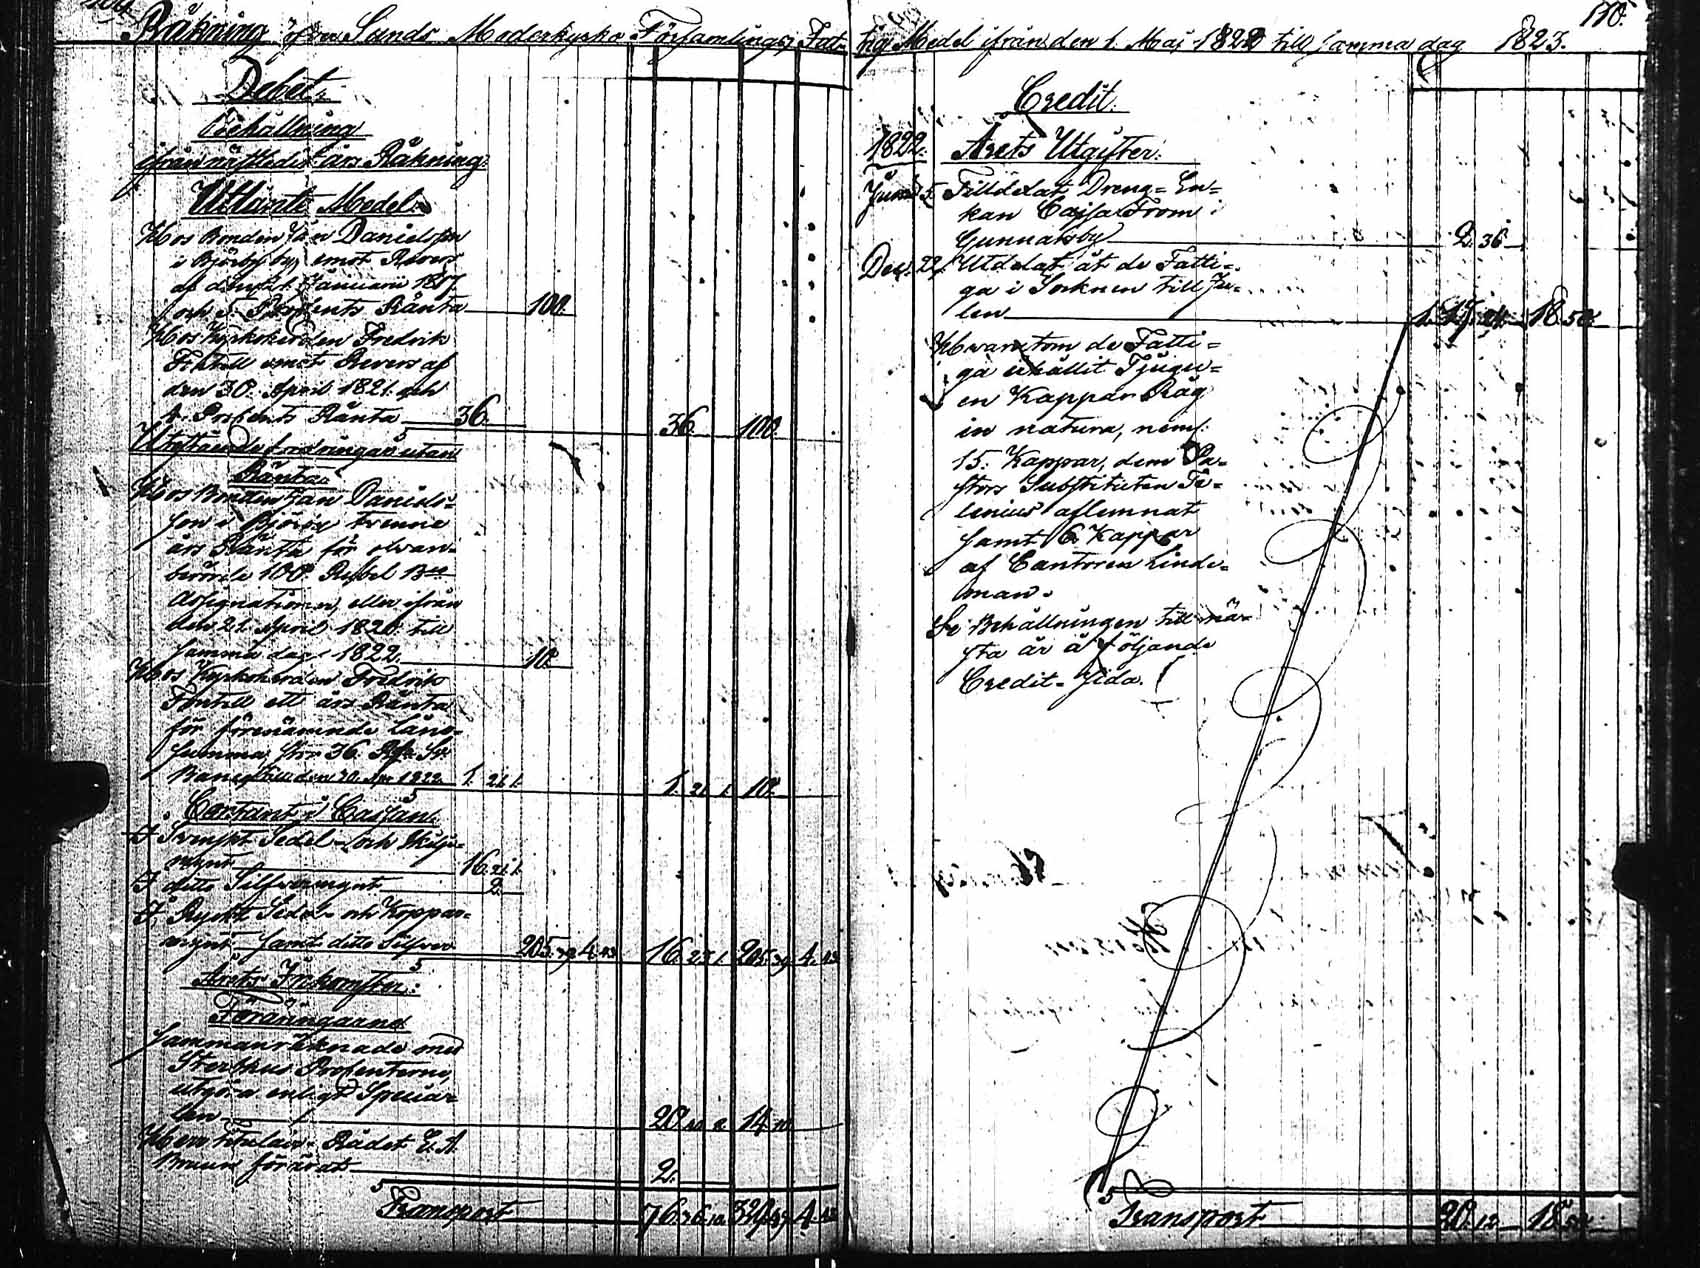 Räkning öfver Sunds Moderkyrko Församlings Fat-
tigs Medel ifrån den 1. Maj 1822 till samma dag 1823.
150.
Debet.
Behållning
ifrån nästledit års Räkning
Utlånte Medel.
Hos Bonden Jan Danielsson
i Björby by emot Revers
af den 21. Januarii 1817.
och 5. Procents Ränta 100.
Hos Kyrkoherden Fredrik
emot Revers af
den 30. April 1821. och
Procents Ränta 36. 36. 100.
Utestående fordringar utan
Ränta.
Hos Bonden Jan Daniels-
son i Björby trenne
års Ränta för ofvan-
berörde 100. Rubel Bco
Assignationer, eller ifrån
den 21. April 1820. till
samma dag 1822. 10.
Hos Kyrkoherden Fredrik
ett års Ränta
för förenämnde Låne-
summa, stor 36. Rdr Sv.
Banco till den 30. Apr 1822. 1. 21. 1. 1. 21. 1. 10.
Contant i Cassan.
I Svenskt Sedel- och Skilje-
mynt 16. 21. 1.
I ditto Silfvermynt 2.
I Ryskt Sedel- och Koppar-
mynt samt ditto Silfver 205. 39. 4. 43. 16. 23. 1. 205. 39. 4. 43.
Årets Inkomster:
Föräringarne
sammanräknade med
Sterbhus Procenterne,
utgöra enligt Special-
len 20. 40. 8. 14. 10.
Herr Titulair Rådet E. A.
Bruun förärat 2.
Transport 76. 36. 10. 329. 49. 4. 43.
Credit.
1822. Årets Utgifter.
Junii 5. Tilldelat Dreng-En-
kan Cajsa From i
Gunnarsby 2. 36.
Dec. 22. Utdelat åt de Fatti-
ga i Socknen till Ju-
len 17. 24. 18. 52.
Hvarutom de Fatti-
ga erhållit Tjugu-
en Kappar Råg
in natura, neml.
15. Kappar, dem Pa-
stors Substituten Te-
lenius aflemnat
samt 6. Kappar
af Cantoren Linde-
man.
Se Behållningen till nä-
sta år å följande
Credit-sida.
Transport 20. 12. 18. 52.